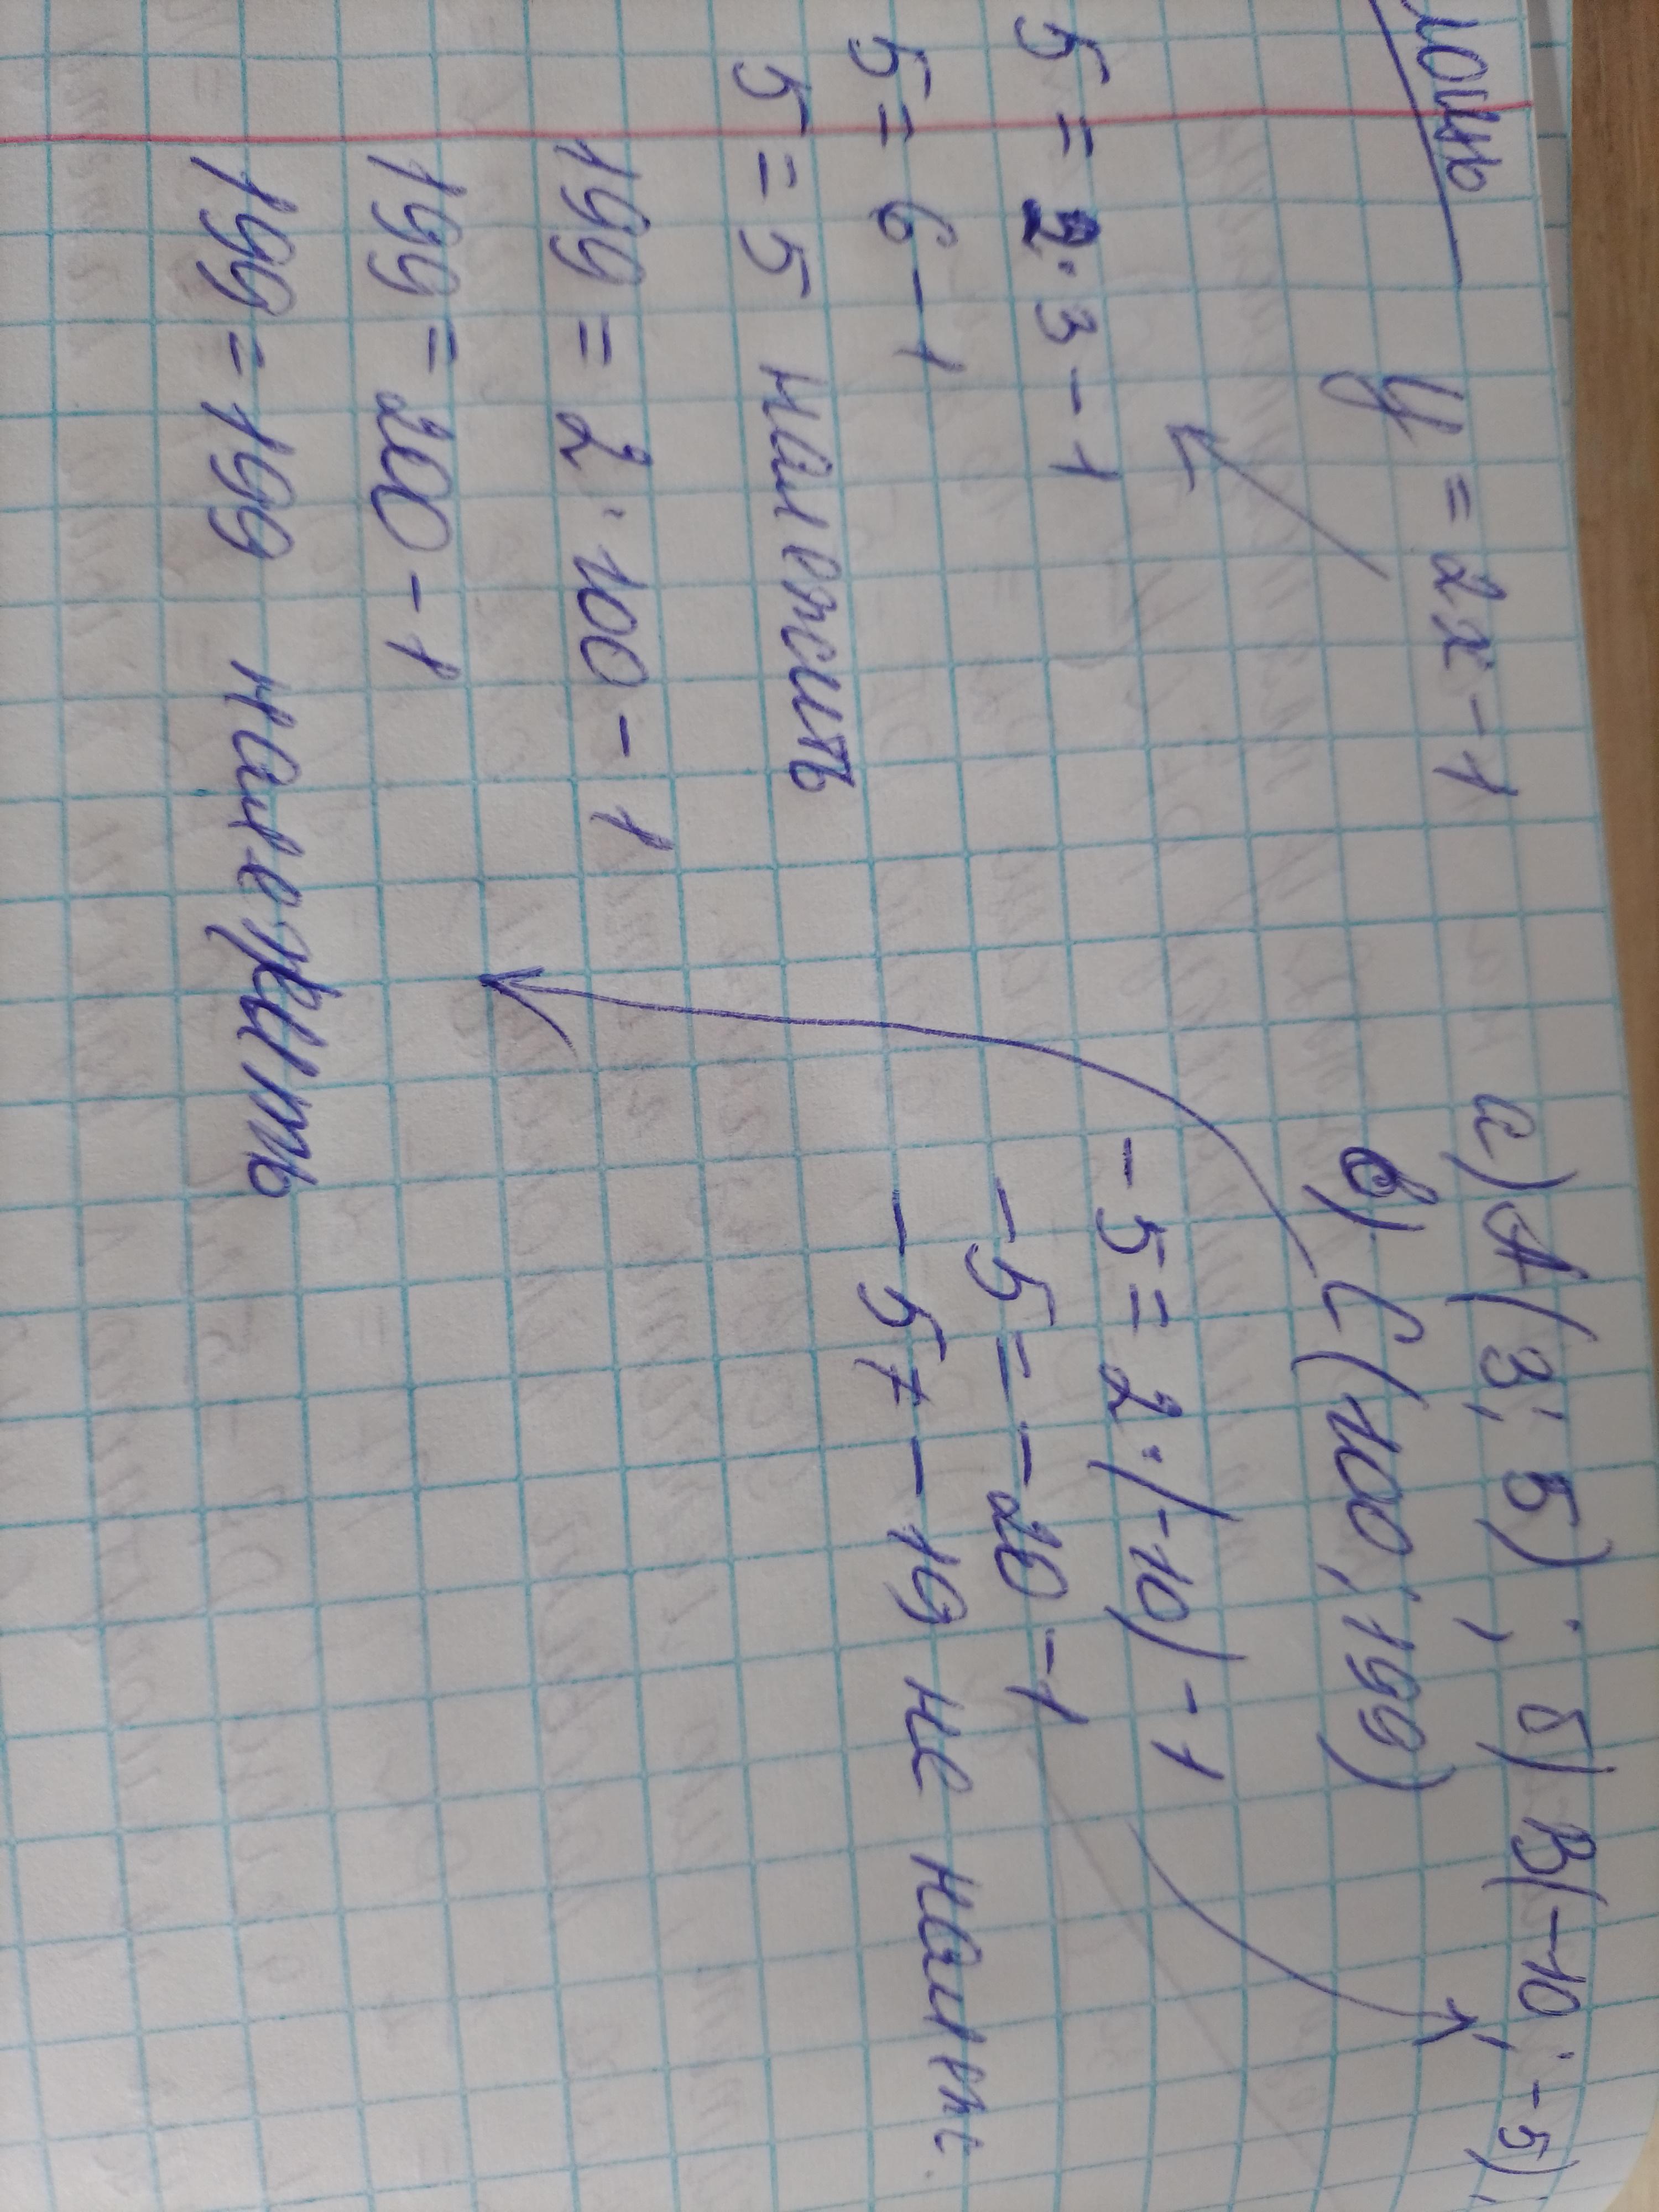 y = 2x - 1
а) А(3; 5); б) В(-10; -5);
в) С(100; 199)
5 = 2·3 - 1
5 = 6 - 1
5 = 5 належить
-5 = 2·(-10) - 1
-5 = -20 - 1
-5 ≠ -19 не належ.
199 = 2·100 - 1
199 = 200 - 1
199 = 199 належить